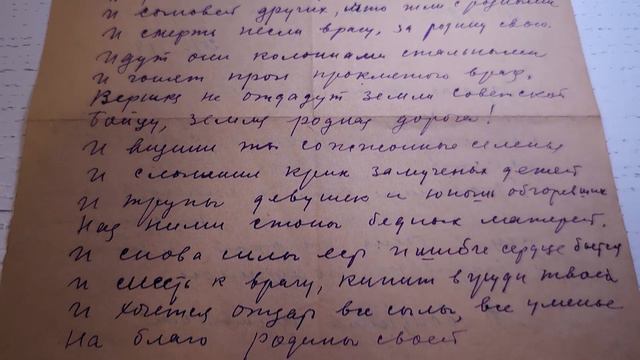 И сыновей других, что жили с родными
И смерть несли врагу, за родину свою.
Идут они колоннами стальными
И гонят прочь проклятого врага,
не отдадут земли советской
Бойцу, земля родная дорога!
И видишь ты сожжонные селенья
И слышишь крик замученых детей
И трупы девушек и юнош обгоревших
Над ними стоны бедных матерей.
И снова силы есть и шибче сердце бьется
И месть к врагу, кипит в груди твоей
И хочется отдать все силы, все уменье
На благо родины своей